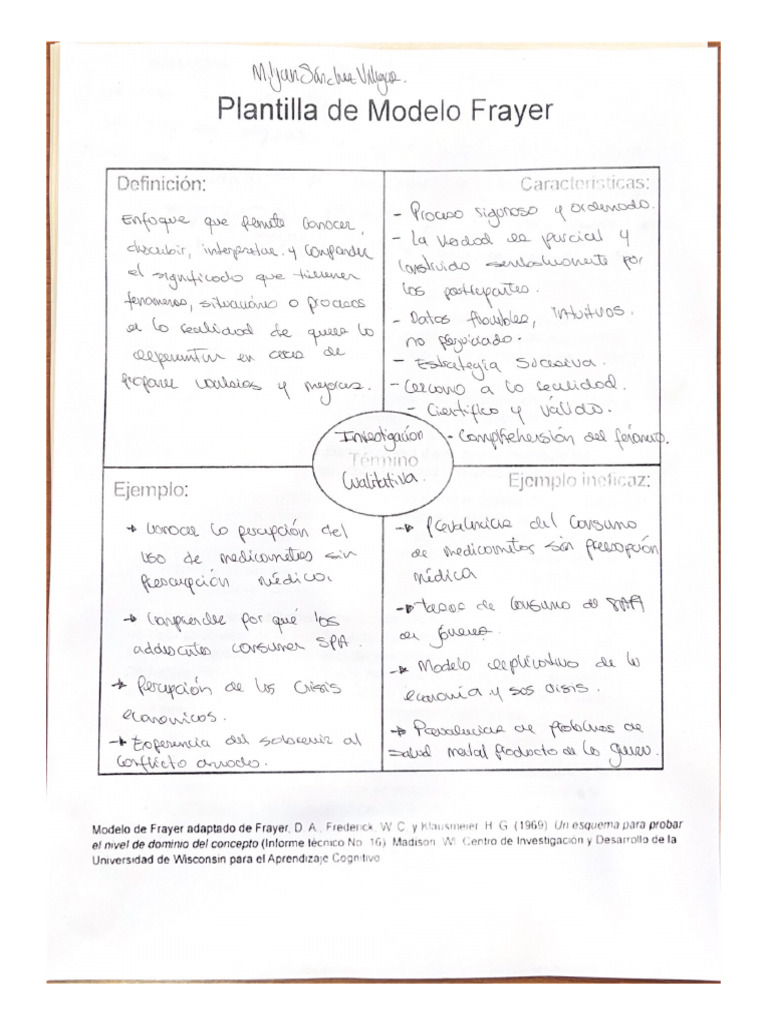 Milyan Sánchez Villegas.
Plantilla de Modelo Frayer
Definición:
Enfoque que permite conocer,
describir, interpretar y comprender
el significado que tienen
fenómenos, situaciones o procesos
de la realidad de quien lo
experimenta en cara de
proponer cambios y mejoras.
Características:
- Proceso riguroso y ordenado.
- La verdad es parcial y
construida socialmente por
los participantes.
- Datos flexibles, intuitivos.
no prejuiciado.
- Estrategia sucesiva.
- Cercano a la realidad.
- Científico y válido.
- Comprehensión del fenómeno.
Investigación
Término
Cualitativa.
Ejemplo:
→ Conocer la percepción del
uso de medicamentos sin
prescripción médica.
→ Comprender por qué los
adolescentes consumen SPA.
→ Percepción de las crisis
económicas.
→ Experiencia del sobrevivir al
conflicto armado.
Ejemplo ineficaz:
→ Prevalencia del consumo
de medicamentos sin prescripción
médica
→ tasas de consumo de SPA
en jóvenes.
→ Modelo explicativo de la
economía y sus crisis.
→ Prevalencia de problemas de
salud mental producto de la guerra.
Modelo de Frayer adaptado de Frayer, D. A., Frederick, W. C. y Klausmeier, H. G. (1969). Un esquema para probar
el nivel de dominio del concepto (Informe técnico No. 16). Madison, WI: Centro de Investigación y Desarrollo de la
Universidad de Wisconsin para el Aprendizaje Cognitivo